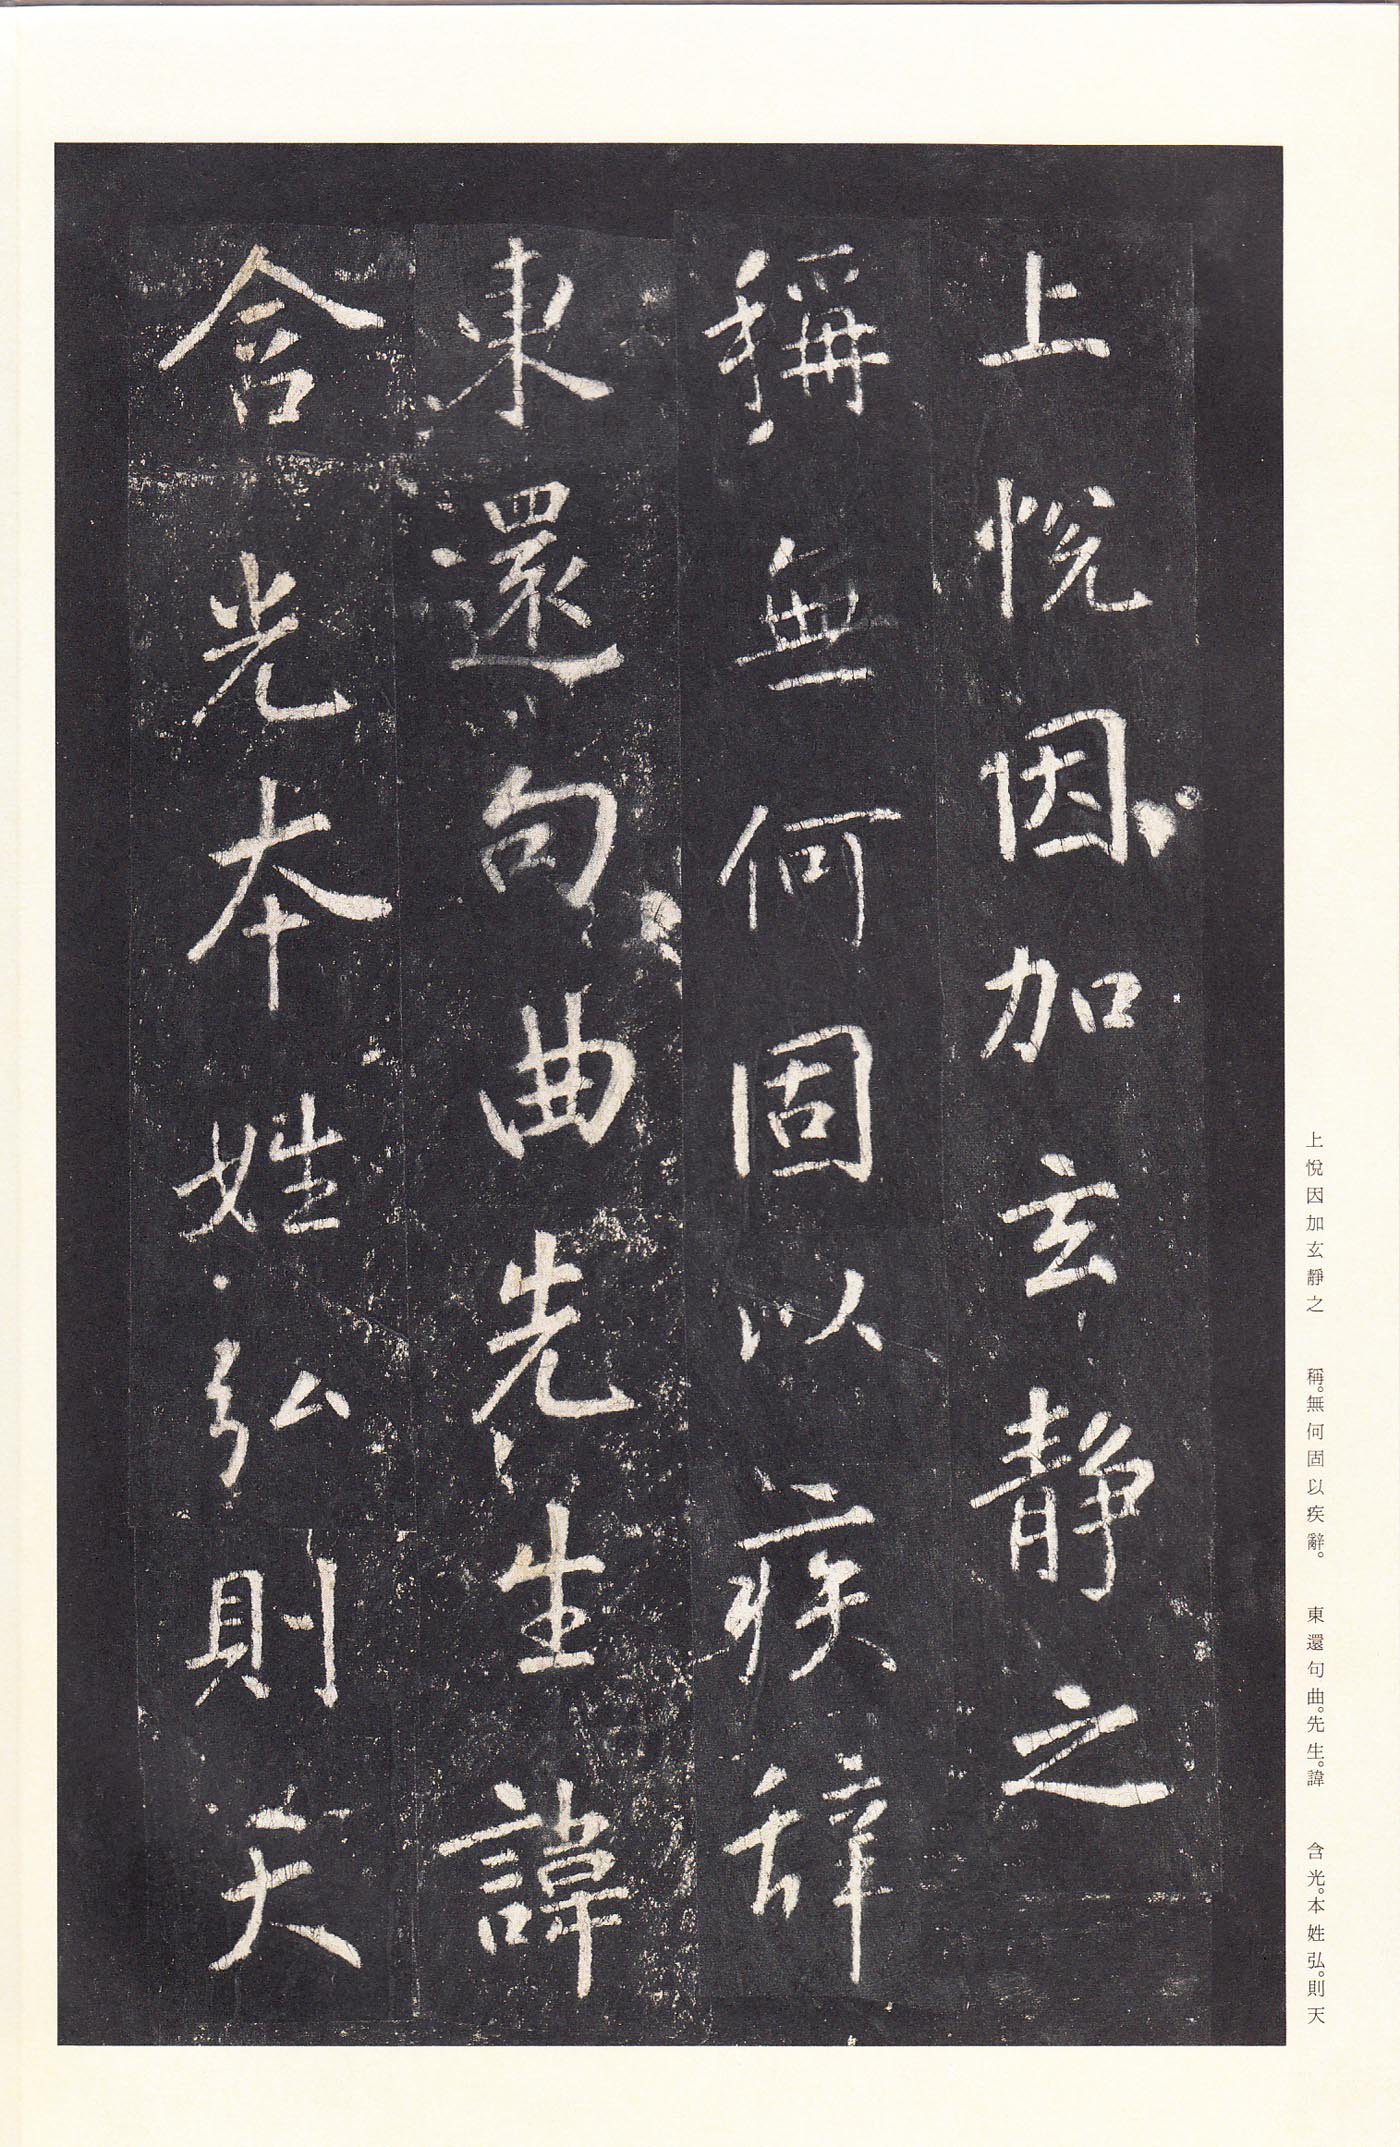 上悅因加玄靜之
稱無何固以疾辭
東還句曲先生諱
含光本姓弘則天
上悅因加玄靜之　稱。無何固以疾辭。　東還句曲。先生。諱　含光。本姓弘。則天